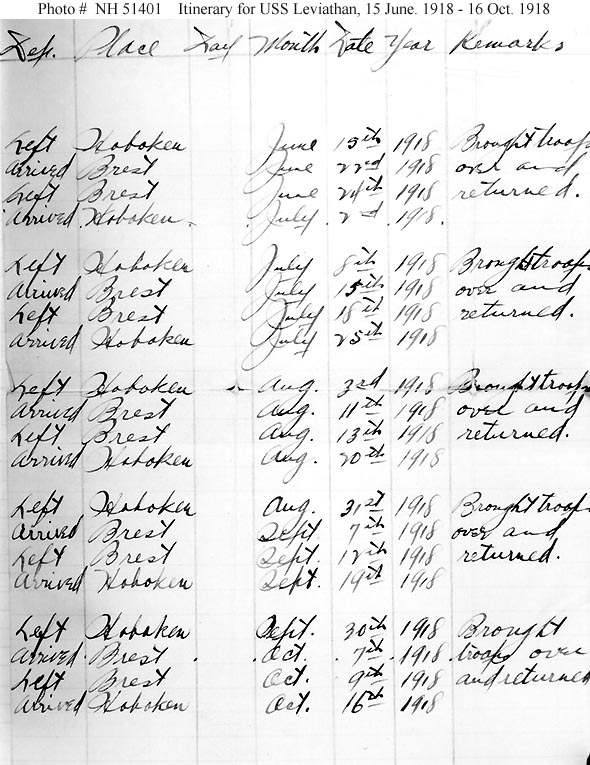 Photo # NH 51401 Itinerary for USS Leviathan, 15 June. 1918 - 16 Oct. 1918
Dep. Place Day Month Date Year Remarks
Left Hoboken June 15th 1918 Brought troops
Arrived Brest June 22nd 1918 over and
Left Brest June 24th 1918 returned.
Arrived Hoboken July 2nd 1918.
Left Hoboken July 8th 1918 Brought troops
Arrived Brest July 15th 1918 over and
Left Brest July 18th 1918 returned.
Arrived Hoboken July 25th 1918
Left Hoboken Aug. 3rd 1918 Brought troops
Arrived Brest Aug. 11th 1918 over and
Left Brest Aug. 13th 1918 returned.
Arrived Hoboken Aug. 20th 1918
Left Hoboken Aug. 31st 1918 Brought troops
Arrived Brest Sept. 7th 1918 over and
Left Brest Sept. 12th 1918 returned.
Arrived Hoboken Sept. 19th 1918
Left Hoboken Sept. 30th 1918 Brought
Arrived Brest Oct. 7th 1918 troops over
Left Brest Oct. 9th 1918 and returned
Arrived Hoboken Oct. 16th 1918